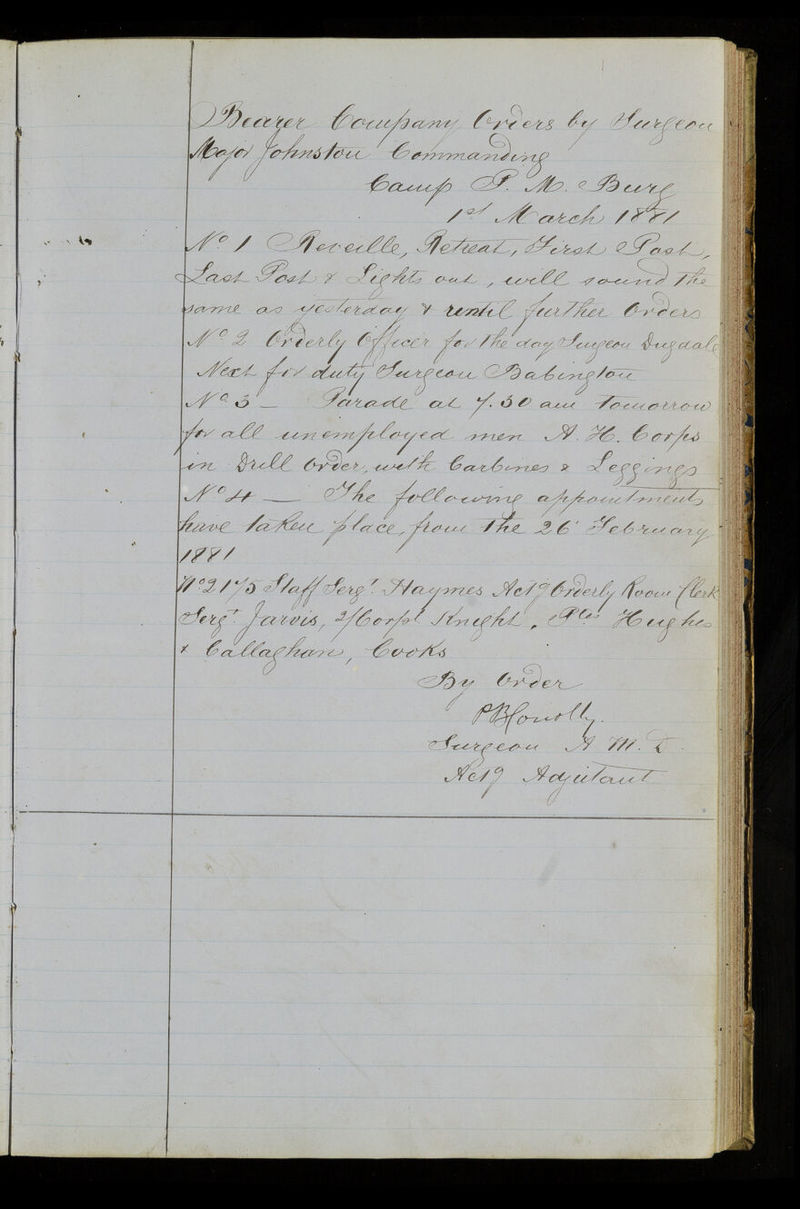 Bearer Company Orders by Surgeon
Major Johnston Commanding
Camp P. M. Burg
1st March 1881
No 1 Reveille, Retreat, First Post,
Last Post & Lights out, will sound the
same as yesterday & until further Orders
No 2 Orderly Officer for the day Surgeon Dugdale
Next for duty Surgeon Babington
No 3 — Parade at 7.30 am tomorrow
for all unemployed men A. H. Corps
in Drill Order, with Carbines & Leggings
No 4 — The following appointments
have taken place, from the 26 February
1881
No 2175 Staff Sergt. Haymes Actg Orderly Room Clerk
Sergt. Jarvis, 2/Corpl Knight, Ptes Hughes
& Callaghan, Cooks
By Order
PB Conolly.
Surgeon A M. D.
Actg Adjutant